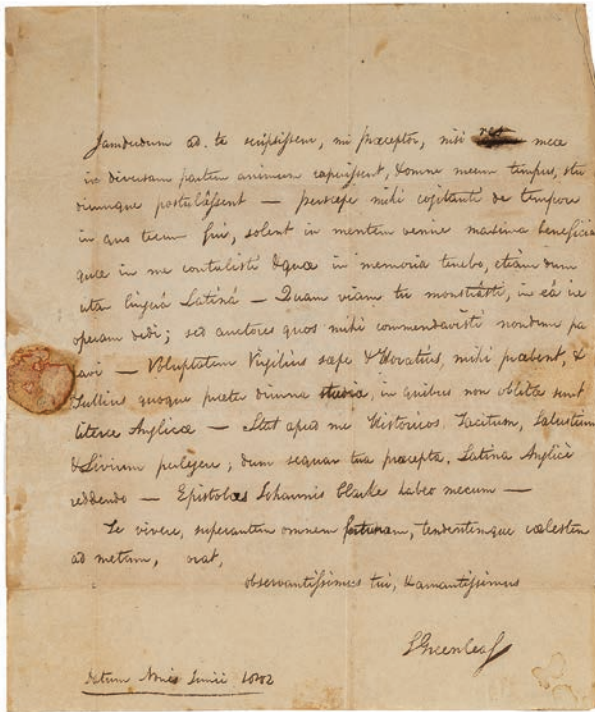 Jamdudum ad te scripsissem, mi praeceptor, nisi res meae
in diversam partem animum rapuissent, & omne meum tempus, stu
diumque postulâssent — persaepe mihi cogitante de tempore
in quo tecum fui, solent in mentem venire maxima beneficia
quae in me contulisti & quae in memoria tenebo, etiam dum
utar linguâ Latinâ — Quam viam tu monstrâsti, in eâ ire
operam dedi; sed auctores quos mihi commendavisti nondum pa
ravi — Voluptatem Virgilius saepe & Horatius, mihi praebent, &
Tullius quoque praeter diurna studia, in quibus non oblitae sunt
literae Anglicae — Stat apud me Historicos, Tacitum, Salustum
& Livium perlegere; dum sequar tua praecepta, Latina Anglicè
reddendo — Epistolas Johannis Clarke habeo mecum —
Te vivere, superantem omnem fortunam, tendentemque caelestem
ad metam, orat,
observantissimus tui, & amantissimus
S Greenleaf
Datum Nonis Junii